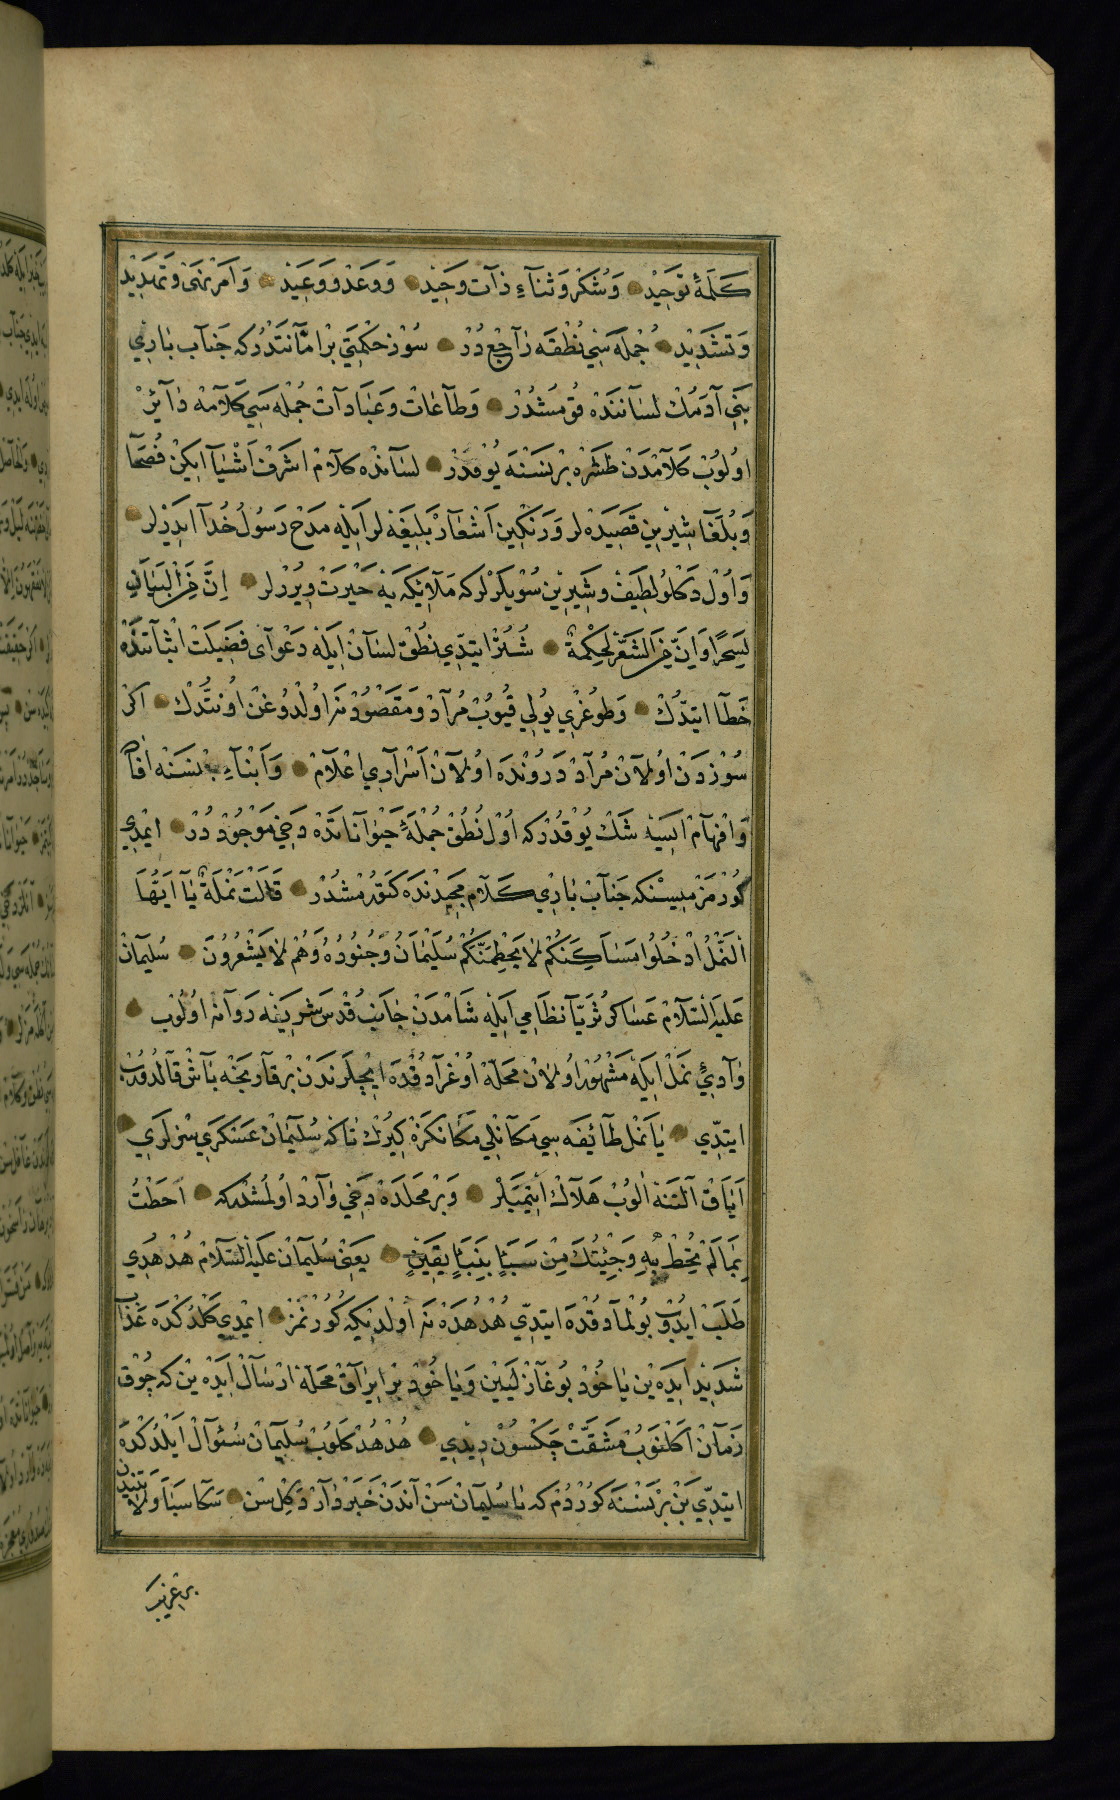 كَلَمَۀ تَوْحَيدْ وَشُكْرْ وَثَنَآءِ ذَاتِ وَحَيدْ وَوَعَدْ وَوَعَيدْ وَاَمَرْ نَهَىْ وَتَهَدَيْد
وَتَشَدَيدْ جُمْلَه سَيْ نُطْقَه رَاجَعْ دُرْ سُوزْ حَكْمَتَيْ بَرْ اَمَّآنَتَدُرْ كَه جَنَآبِ بَارَيْ
بَنَي آدَمُكْ لَسَآنَنَدَه قَوْمُشْدُرْ وَطَآعَاتْ وَعَبَادَآتْ جُمْلَه سَيْ كَلَآمَه دَآئَرْ
اوُلُوبْ كَلَآمْدَنْ طَشَرَه بَرْنَسْنَه يُوقْدُرْ لَسَآنْدَه كَلَامْ اَشَرَفِ اَشْيَآ اَيكَنْ فُصَحَآ
وَبُلَغَآ شِيرِينْ قَصَيدَه لَرْ وَرَنْكِينْ اَشْعَارْ بَلِيغَه لَر اَيْلَه مَدْحِ رَسُولِ خُدَآ اَيدَرْلَر
وَاُولْ دَكْلُو لَطَيفْ وَشَيرِينْ سُوْيلَرْلَر كَه مَلَآئِكَه يَه حَيْرَتْ وِيرُرْلَر اِنَّ مِنَ الْبَيَانِ
لَسِحْرًا وَاِنَّ مِنَ الشَّعْرِ لَحِكْمَةٌ شُتُرْ ايتدِّي نُطْقِ لَسَآنْ اَيلَه دَعْوَاىِ فَضَيلَتْ اثْبَآتَنَدَه
خَطَآ ايتدُّكْ وَطُوغْرِي يُولِي قُيُوبْ مُرَآدْ وَمَقْصُودْ نَه اوُلْدُوغَنْ اُونُتُّدُكْ اَكَرْ
سُوزْدَنْ اوُلَآنْ مُرَآدْ دَرُونْدَه اوُلَآنْ اَسْرَآرَي اعْلَامْ وَاَبْنَآءِ جَنْسَنَه افَاده
وَافْهَآمْ ايسَه شَكْ يُوقْدُرْ كَه اُولْ نُطُقْ جُمْلَۀ حَيْوَانَاتَدَه دَخَي مَوْجُودْ دُرْ ايمْدِي
كُورْمَزْ مِيسَنْكَه جَنَآبِ بَارِي كَلَآمِ مَجِيدْنَدَه كَتَوُرْمُشْدُرْ قَالَتْ نَمْلَةٌ يَآ اَيُّهَا
النَّمْلُ ادْخُلُوا مَسَاكِنَكُمْ لَا يَحْطِمَنَّكُمْ سُلَيْمَانُ وَجُنُودُهُ وَهُمْ لَا يَشْعُرُونَ سُلَيمَانْ
عَلَيهِ السَّلَآمْ عَسَاكَرِ ثُرَيَّآ نظَامِي اَيلَه شَامْدَنْ جَانِبِ قُدْسِ شَرِيفَه رَوَآنَه اوُلُوبْ
وَآدِئِ نَمْلْ اَيلَه مَشْهُورْ اوُلَانْ مَحَلَّه اوُغْرَآدُقْدَه اَيچلَرَنْدَنْ بَرْ قَآرَنجَه بَآشْ قَالْدُرُوبْ
ايتدِّي يَا نَمْلْ طَآئِفَه سِي مَكَآنْلِي مَكَانْكَزَه كِيرُكْ تَا كَه سُلَيمَانْ عَسْكَرِي سزلَري
اَيَاقْ آلتَنَه اَلُوبْ هَلَآكْ اَيْتمَيَلَرْ وَبَرْ مَحَلْدَه دَخَي وَآرِدْ اوُلْمُشْدُر كَه اَحَطْتُ
بِمَا لَمْ تُحِطْ بِهِ وَجِئْتُكَ مِنْ سَبَاٍ بِنَبَاٍ يَقِينٍ يَعَنْي سُلَيمَآنْ عَلَيهِ السَّلَآمْ هُدْهُدِي
طَلَبْ ايدُوبْ بُولْمَآدُقْدَه ايتدِّي هُدْهُدَه نَه اُولْدِيكَه كُورُنْمَزْ ايمْدِي كَلْدُكْدَه عَذَآبِ
شَدَيدْ ايدَه يَنْ يَا خُودْ بُوغَآزْلَيَيَن وَيَا خُودْ بَرْ ايرَاقْ مَحَلَّه اَرْسَآلْ اَيدَه يَنْ كَه چُوقْ
زَمَآنْ اَكْلَنُوبْ مَشَقَّتْ چَكْسُونْ دِيْدِي هُدْهُدْ كَلُوبْ سُلَيمَآنْ سُئوآلْ اَيلَدُكْدَه
ايتدِّي بَنْ بَرْ نَسْنَه كُورْدُمْ كَه يَا سُلَيمَآنْ سَنْ آنْدَنْ خَبَرْدَآرْ دَكِلْ سَنْ سَكَا سَبَأ وَلَايتندن
بر غريب